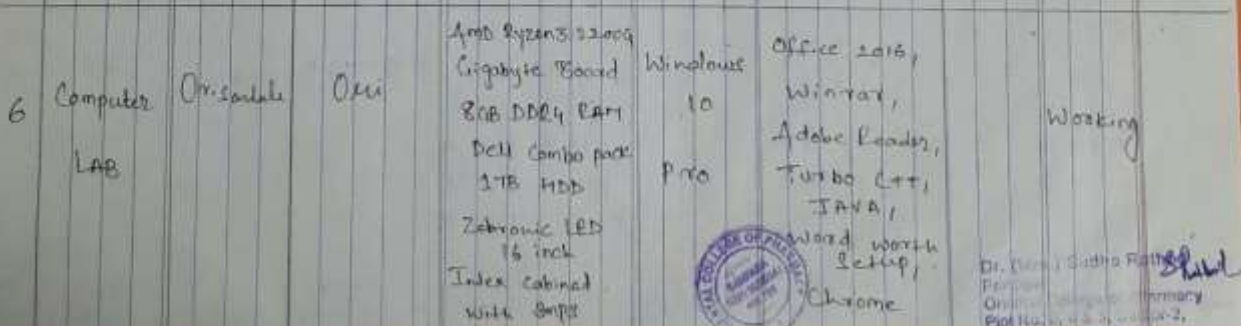 6
Computer
LAB
AMD Ryzen 3 2200G
Gigabyte Board
8GB DDR4 RAM
Dell Combo pack
1TB HDD
Zebronic LED
16 inch
Index Cabinet
with SMPS
Windows
10
Pro
Office 2016,
Winrar,
Adobe Reader,
Turbo C++,
JAVA,
Word worth
Setup,
Chrome
Working
COLLEGE OF PHARMACY
Dr. Sudha